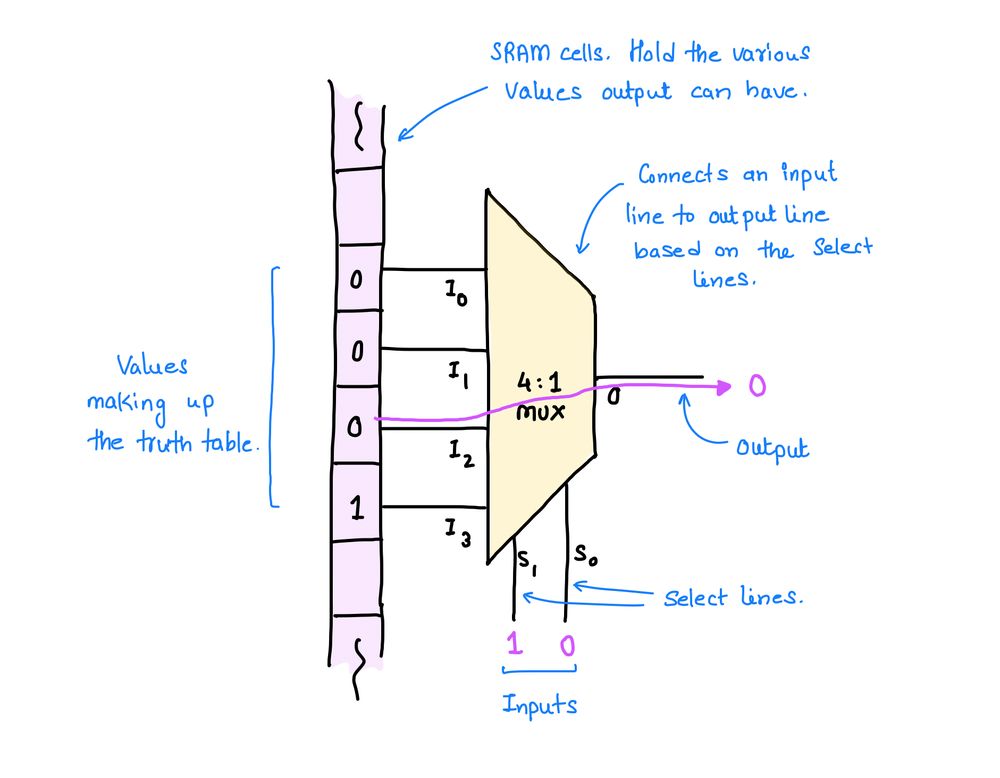 SRAM cells. Hold the various
values output can have.
Connects an input
line to output line
based on the select
lines.
0
I0
0
I1
Values
making up
the truth table.
4:1
mux
0
0
0
I2
output
1
I3
S1
S0
Select lines.
1 0
Inputs